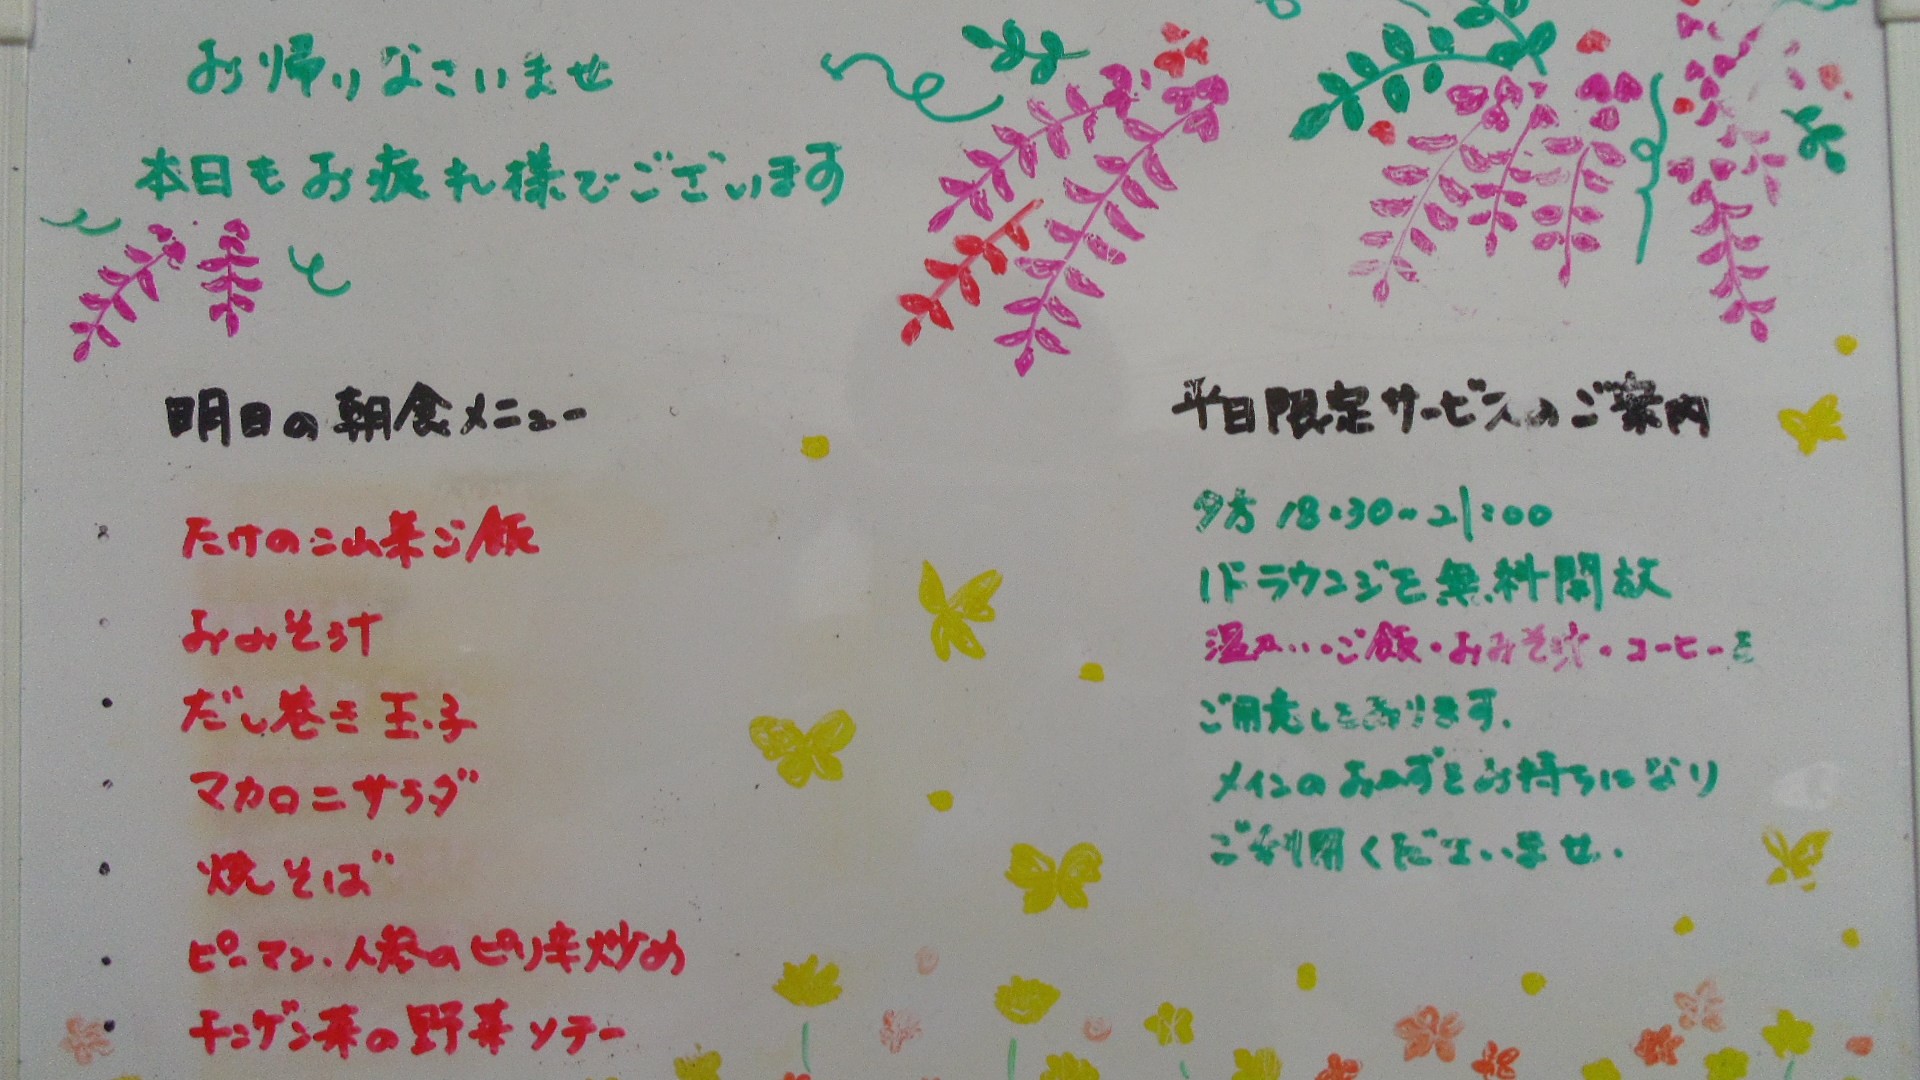 お帰りなさいませ
本日もお疲れ様でございます
明日の朝食メニュー
・たけのこ山菜ご飯
・おみそ汁
・だし巻き玉子
・マカロニサラダ
・焼そば
・ピーマン、人参のピリ辛炒め
・チンゲン菜の野菜ソテー
平日限定サービスのご案内
夕方 18:30~21:00
1Fラウンジを無料開放
温かい・ご飯・おみそ汁・コーヒーを
ご用意しております。
メインのおかずをお持ちになり
ご利用くださいませ.